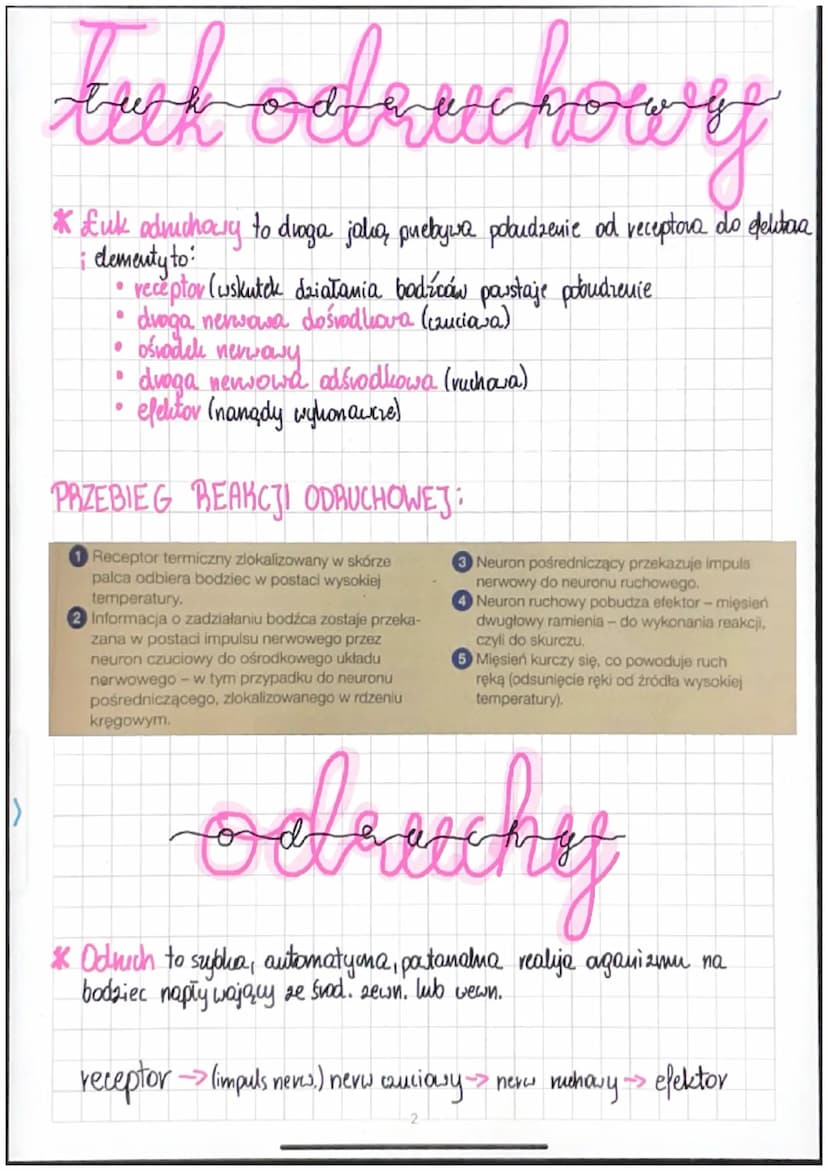 Łuk odruchowy
* Łuk odruchowy to droga jaką przebywa pobudzenie od receptora do efektora
i elementy to:
• receptor (wskutek działania bodźców powstaje pobudzenie
• droga nerwowa dośrodkowa (czuciowa)
• ośrodek nerwowy
• droga nerwowa odśrodkowa (ruchowa)
• efektor (narządy wykonawcze)
PRZEBIEG REAKCJI ODRUCHOWEJ:
1 Receptor termiczny zlokalizowany w skórze
palca odbiera bodziec w postaci wysokiej
temperatury.
2 Informacja o zadziałaniu bodźca zostaje przeka-
zana w postaci impulsu nerwowego przez
neuron czuciowy do ośrodkowego układu
nerwowego – w tym przypadku do neuronu
pośredniczącego, zlokalizowanego w rdzeniu
kręgowym.
3 Neuron pośredniczący przekazuje impuls
nerwowy do neuronu ruchowego.
4 Neuron ruchowy pobudza efektor – mięsień
dwugłowy ramienia – do wykonania reakcji,
czyli do skurczu.
5 Mięsień kurczy się, co powoduje ruch
ręką (odsunięcie ręki od źródła wysokiej
temperatury).
odruchy
* Odruch to szybka, automatyczna, patanalna reakcja organizmu na
bodziec napływający ze środ. zewn. lub wewn.
receptor → (impuls nerw.) nerw czuciowy → nerw ruchowy → efektor
2